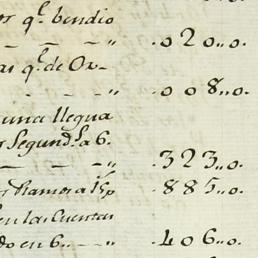 qᵉ bendio
020..0.
qᵉ de Ox-
008..0.
una llegua
Segund.ª a 6.
323..0.
885..0.
en las Cuentas
do en 6.. 406..0.